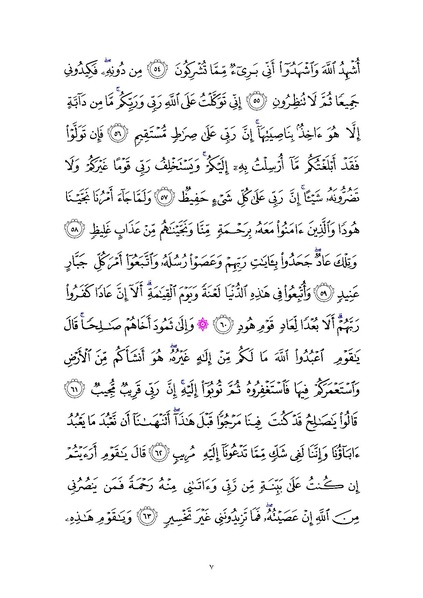 أُشْهِدُ اللَّهَ وَاشْهَدُوٓا۟ أَنِّى بَرِىٓءٌ مِّمَّا تُشْرِكُونَ ﴿٥٤﴾ مِن دُونِهِۦ ۖ فَكِيدُونِى
جَمِيعًا ثُمَّ لَا تُنظِرُونِ ﴿٥٥﴾ إِنِّى تَوَكَّلْتُ عَلَى اللَّهِ رَبِّى وَرَبِّكُم ۚ مَّا مِن دَآبَّةٍ
إِلَّا هُوَ ءَاخِذٌۢ بِنَاصِيَتِهَآ ۚ إِنَّ رَبِّى عَلَىٰ صِرَٰطٍ مُّسْتَقِيمٍ ﴿٥٦﴾ فَإِن تَوَلَّوْا۟
فَقَدْ أَبْلَغْتُكُم مَّآ أُرْسِلْتُ بِهِۦٓ إِلَيْكُمْ ۚ وَيَسْتَخْلِفُ رَبِّى قَوْمًا غَيْرَكُمْ وَلَا
تَضُرُّونَهُۥ شَيْـًٔا ۚ إِنَّ رَبِّى عَلَىٰ كُلِّ شَىْءٍ حَفِيظٌ ﴿٥٧﴾ وَلَمَّا جَآءَ أَمْرُنَا نَجَّيْنَا
هُودًا وَالَّذِينَ ءَامَنُوا۟ مَعَهُۥ بِرَحْمَةٍ مِّنَّا وَنَجَّيْنَٰهُم مِّنْ عَذَابٍ غَلِيظٍ ﴿٥٨﴾
وَتِلْكَ عَادٌ ۖ جَحَدُوا۟ بِـَٔايَٰتِ رَبِّهِمْ وَعَصَوْا۟ رُسُلَهُۥ وَاتَّبَعُوٓا۟ أَمْرَ كُلِّ جَبَّارٍ
عَنِيدٍ ﴿٥٩﴾ وَأُتْبِعُوا۟ فِى هَٰذِهِ الدُّنْيَا لَعْنَةً وَيَوْمَ الْقِيَٰمَةِ ۗ أَلَآ إِنَّ عَادًا كَفَرُوا۟
رَبَّهُمْ ۗ أَلَا بُعْدًا لِّعَادٍ قَوْمِ هُودٍ ﴿٦٠﴾ ۞ وَإِلَىٰ ثَمُودَ أَخَاهُمْ صَٰلِحًا ۚ قَالَ
يَٰقَوْمِ اعْبُدُوا۟ اللَّهَ مَا لَكُم مِّنْ إِلَٰهٍ غَيْرُهُۥ ۖ هُوَ أَنشَأَكُم مِّنَ الْأَرْضِ
وَاسْتَعْمَرَكُمْ فِيهَا فَاسْتَغْفِرُوهُ ثُمَّ تُوبُوٓا۟ إِلَيْهِ ۚ إِنَّ رَبِّى قَرِيبٌ مُّجِيبٌ ﴿٦١﴾
قَالُوا۟ يَٰصَٰلِحُ قَدْ كُنتَ فِينَا مَرْجُوًّا قَبْلَ هَٰذَآ ۖ أَتَنْهَىٰنَآ أَن نَّعْبُدَ مَا يَعْبُدُ
ءَابَآؤُنَا وَإِنَّنَا لَفِى شَكٍّ مِّمَّا تَدْعُونَآ إِلَيْهِ مُرِيبٍ ﴿٦٢﴾ قَالَ يَٰقَوْمِ أَرَءَيْتُمْ
إِن كُنتُ عَلَىٰ بَيِّنَةٍ مِّن رَّبِّى وَءَاتَىٰنِى مِنْهُ رَحْمَةً فَمَن يَنصُرُنِى
مِنَ اللَّهِ إِنْ عَصَيْتُهُۥ ۖ فَمَا تَزِيدُونَنِى غَيْرَ تَخْسِيرٍ ﴿٦٣﴾ وَيَٰقَوْمِ هَٰذِهِۦ
٧